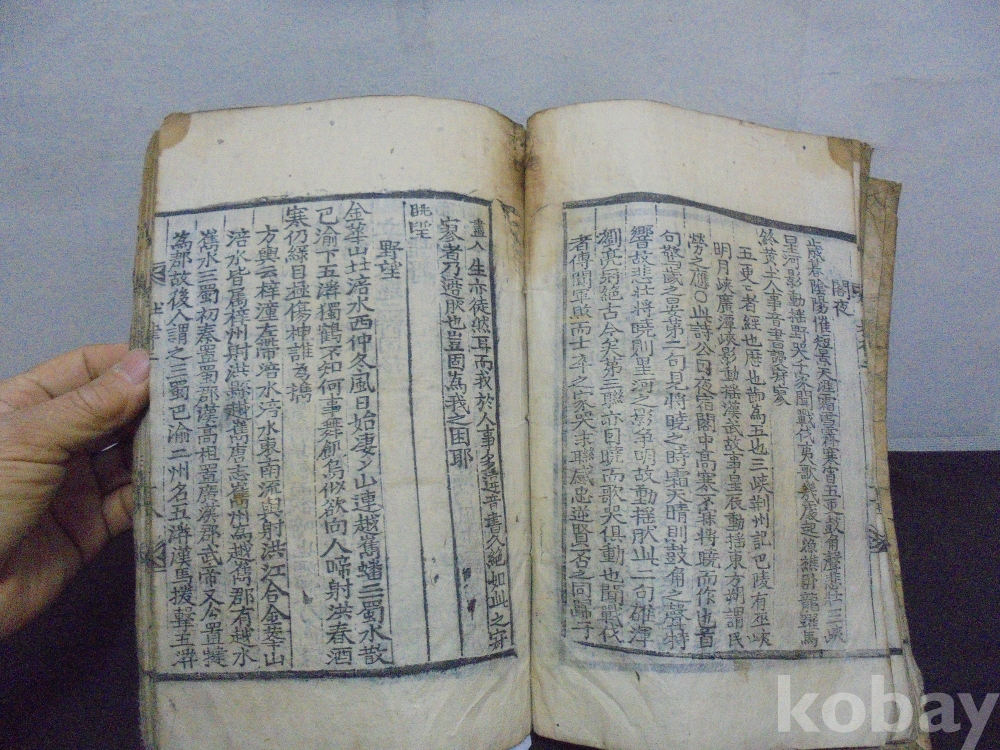 閣夜
歲暮陰陽催短景天涯霜雪霽寒宵五更鼓角聲悲壯三峽
星河影動搖野哭千家聞戰伐夷歌幾處起漁樵臥龍躍馬
終黃土人事音書謾寂寥
五更更者經也歷也節為五也三峽荊州記巴陵有巫峽
明月峽廣溪峽影動搖漢武故事星辰動搖東方朔謂民
勞之應○此詩公因夜宿閣中高寒不寐將曉而作也首
句歎歲之晏第二句見將曉之時霜天晴則鼓角之聲特
響故悲壯將時則星河之影爭明故動搖然此二句雄渾
劉亮冠絕古今矣第三聯亦因曉而歌哭俱動也聞戰伐
者傳聞軍敗而士卒之家哭末聯感忠逆賢否之同歸于
盡人生亦徒然耳而我於人事多違音書久絕如此之寂
寥者乃適然也豈固為我之困耶
眺望
野望
金華山北涪水西仲冬風日始淒淒山連越巂蟠三蜀水散
巴渝下五溪獨鶴不知何事舞飢烏似欲向人啼射洪春酒
寒仍綠目極傷神誰為攜
方輿云梓潼左帶涪水涪水東南流與射洪江合金華山
涪水皆屬梓州射洪縣越巂唐志巂水為越巂郡有越水
巂水三蜀初秦置蜀郡漢高祖置廣漢郡武帝又分置犍
為郡故後人謂之三蜀巴渝二州名五溪漢馬援擊五溪
kobay